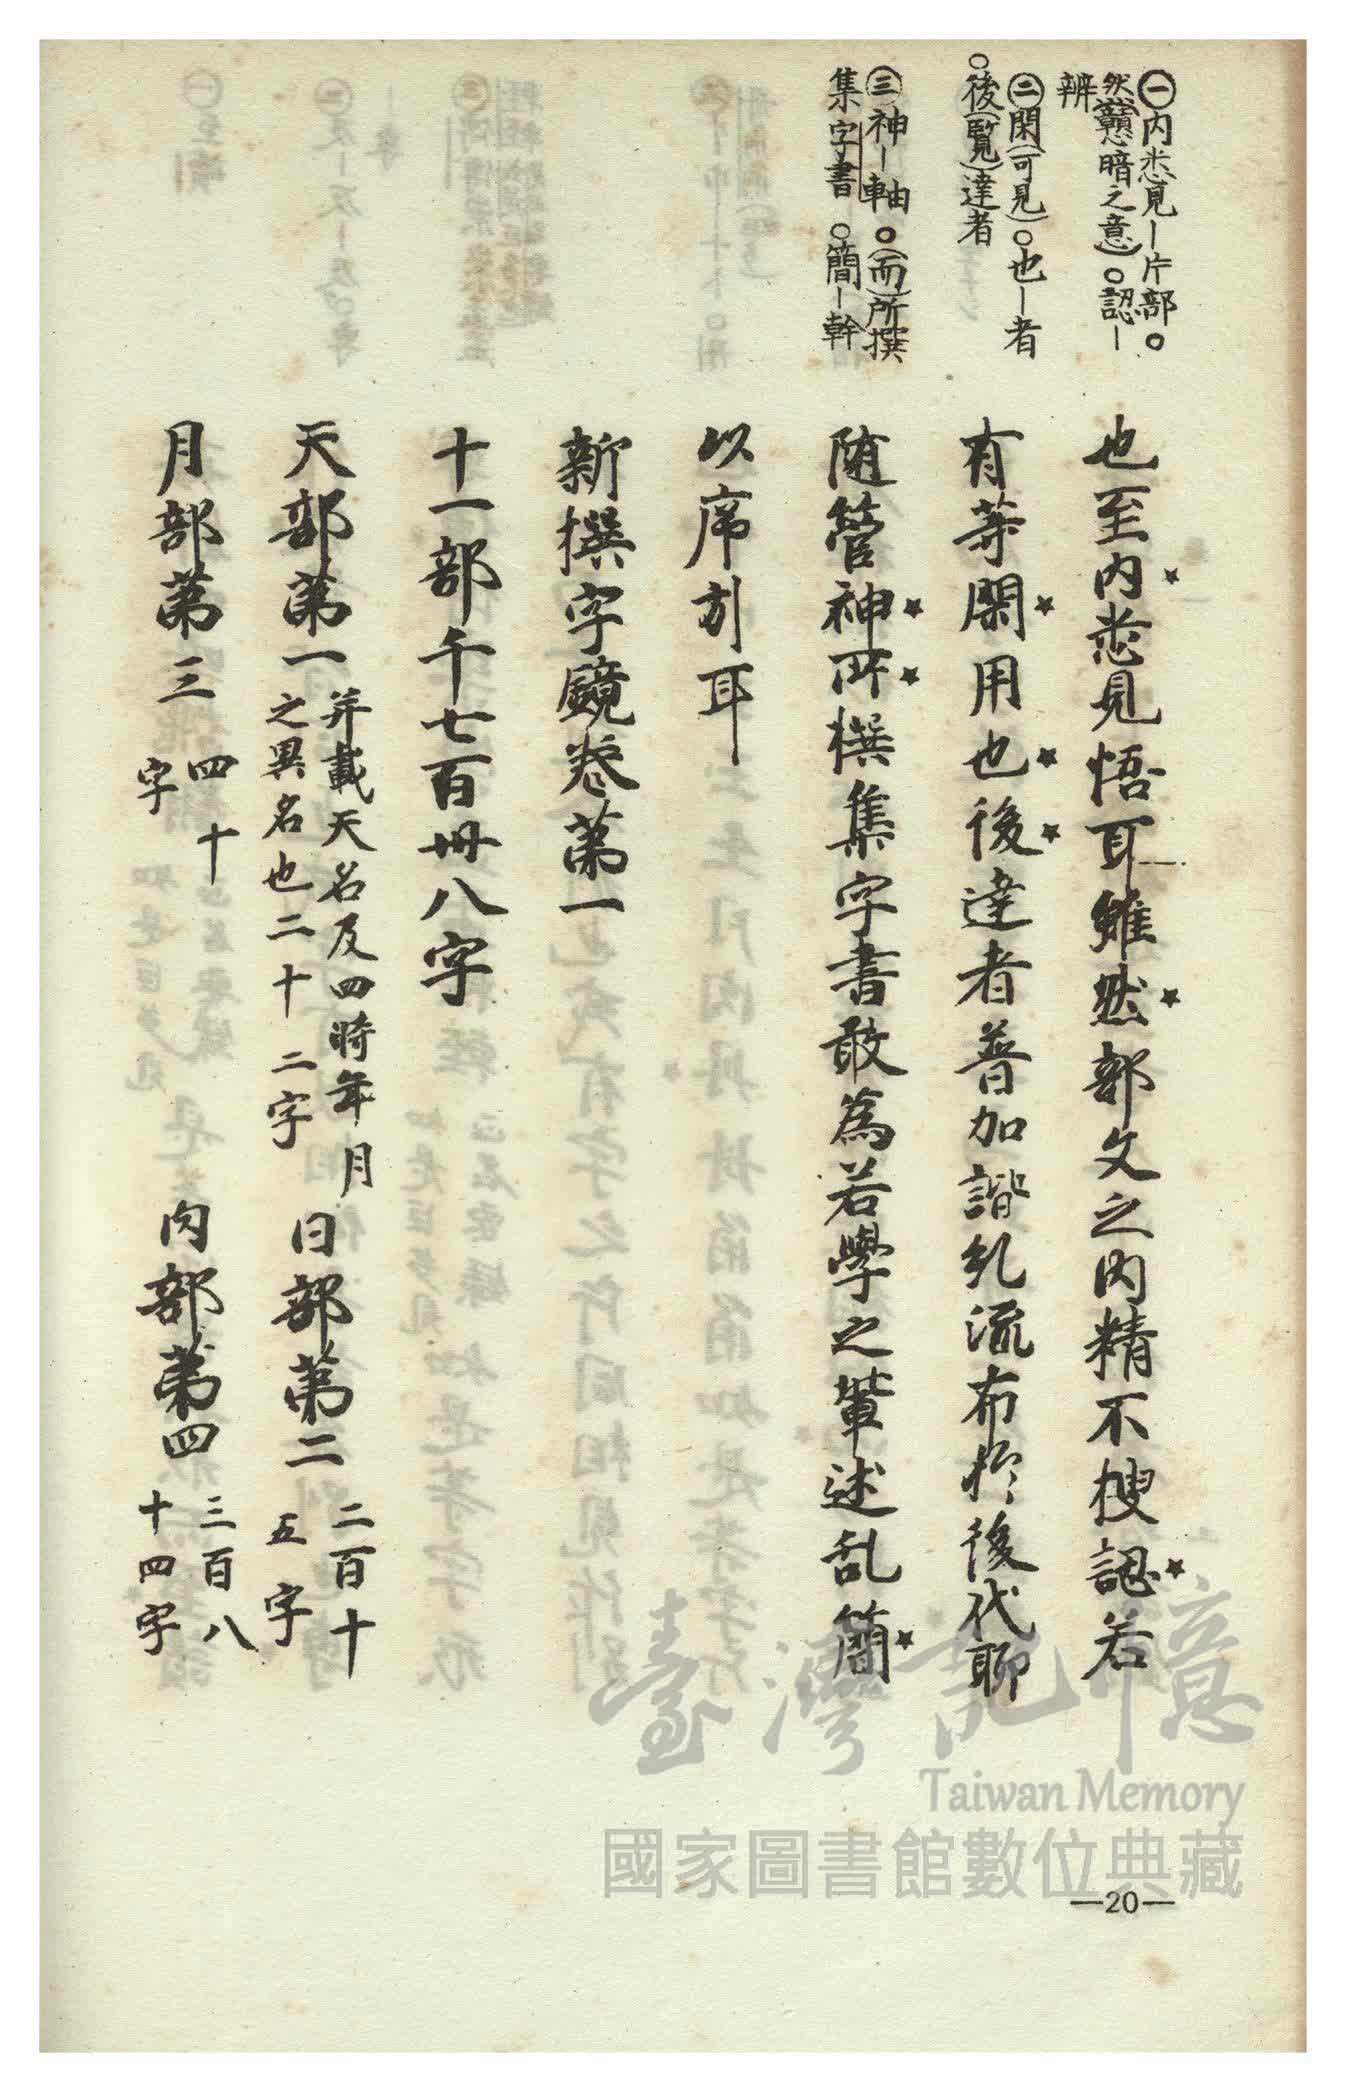 ㊀内悉見—片部○
然(戇愚暗之意)○認—
辨
㊁閑(可見)○也—者
○後(覧)達者
㊂神—軸○(而)所撰
集字書○簡—幹
也至内悉見悟耳雖然部文之内精不搜認若
有等閑用也後達者普加諧糺流布於後代聊
随管神所撰集字書敢為若學之輩述乱簡
以序引耳
新撰字鏡卷第一
十一部千七百卌八字
天部第一 并載天名及四時年月之異名也二十二字 日部第二 二百十五字
月部第三 四十字 肉部第四 三百八十四字
臺灣記憶
Taiwan Memory
國家圖書館數位典藏
—20—